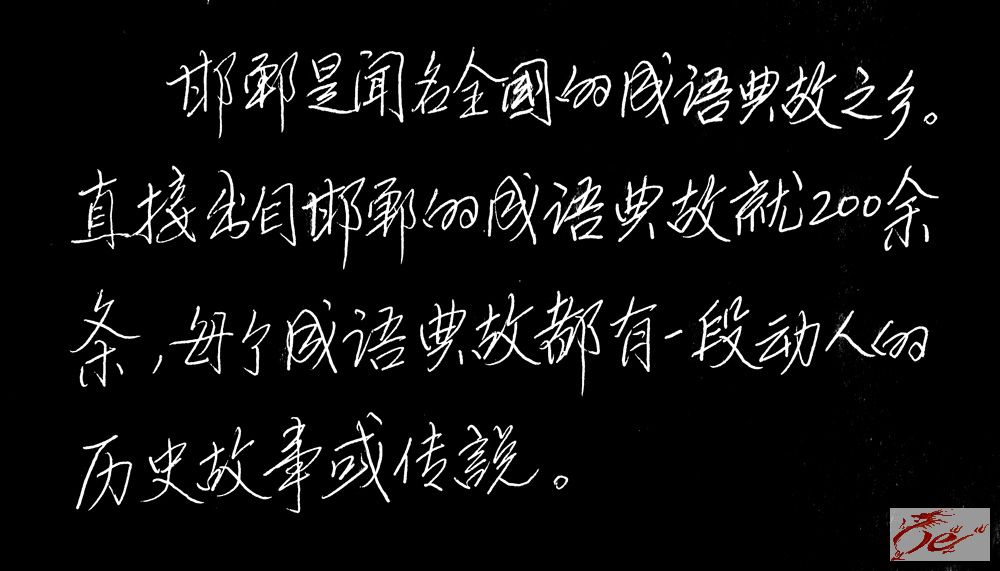 邯郸是闻名全國的成语典故之乡。
直接出自邯郸的成语典故就200余
条,每个成语典故都有一段动人的
历史故事或传説。